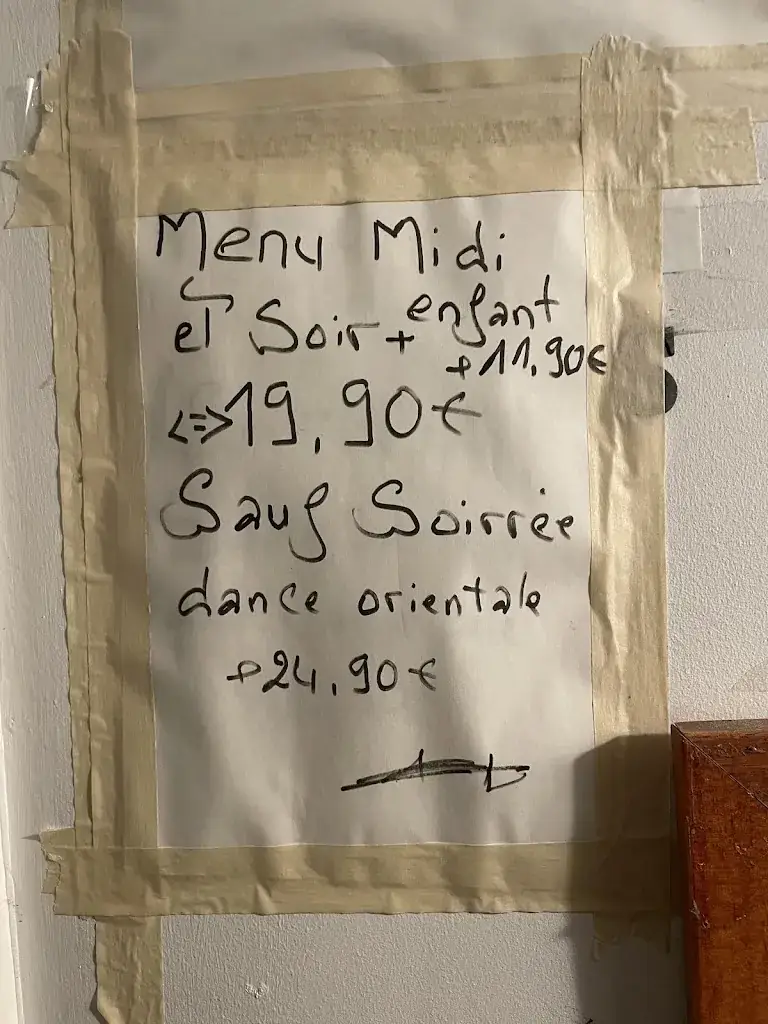 Menu Midi
et Soir + enfant
+11,90€
<=>19,90€
Sauf Soirrée
dance orientale
+24,90€